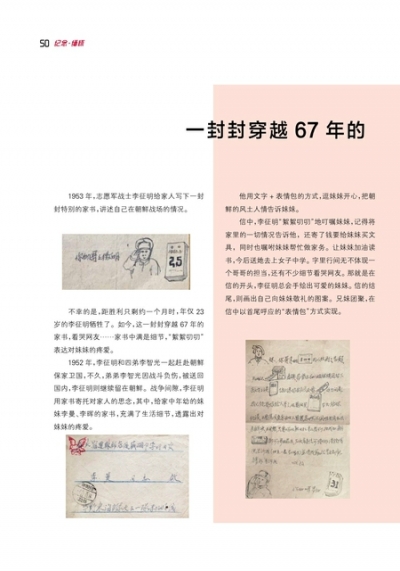 50 纪念·缅怀
一封封穿越 67 年的
1953 年，志愿军战士李征明给家人写下一封
封特别的家书，讲述自己在朝鲜战场的情况。
不幸的是，距胜利只剩约一个月时，年仅 23
岁的李征明牺牲了。如今，这一封封穿越 67 年的
家书，看哭网友……家书中满是细节，“絮絮叨叨”
表达对妹妹的疼爱。
1952 年，李征明和四弟李智光一起赶赴朝鲜
保家卫国，不久，弟弟李智光因战斗负伤，被送回
国内，李征明则继续留在朝鲜。战争间隙，李征明
用家书寄托对家人的思念，其中，给家中年幼的妹
妹李曼、李晖的家书，充满了生活细节，透露出对
妹妹的疼爱。
他用文字 + 表情包的方式，逗妹妹开心，把朝
鲜的风土人情告诉妹妹。
信中，李征明“絮絮叨叨”地叮嘱妹妹，记得将
家里的一切情况告诉他，还寄了钱要给妹妹买文
具，同时也嘱咐妹妹帮忙做家务。让妹妹加油读
书，今后送她去上女子中学。字里行间无不体现一
个哥哥的担当，还有不少细节看哭网友。那就是在
信的开头，李征明总会手绘出可爱的妹妹。信的结
尾，则画出自己向妹妹敬礼的图案。兄妹团聚，在
信中以首尾呼应的“表情包”方式实现。